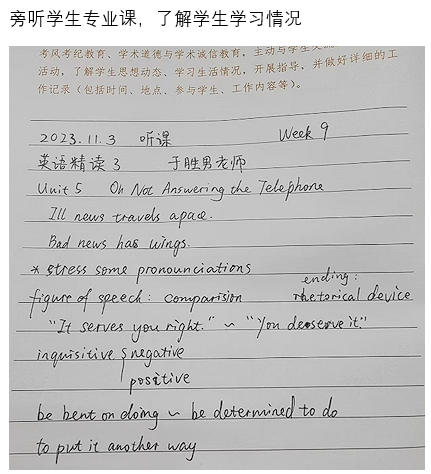 旁听学生专业课，了解学生学习情况
考风考纪教育、学术道德与学术诚信教育，主动与学生交流
活动，了解学生思想动态、学习生活情况，开展指导，并做好详细的工
作记录（包括时间、地点、参与学生、工作内容等）。
2023.11.3 听课 Week 9
英语精读3 于胜男老师
Unit 5 On Not Answering the Telephone
Ill news travels apace.
Bad news has wings.
* stress some pronounciations
ending:
figure of speech: comparision rhetorical device
"It serves you right." ~ "You deserve it"
inquisitive { negative
positive
be bent on doing ~ be determined to do
to put it another way